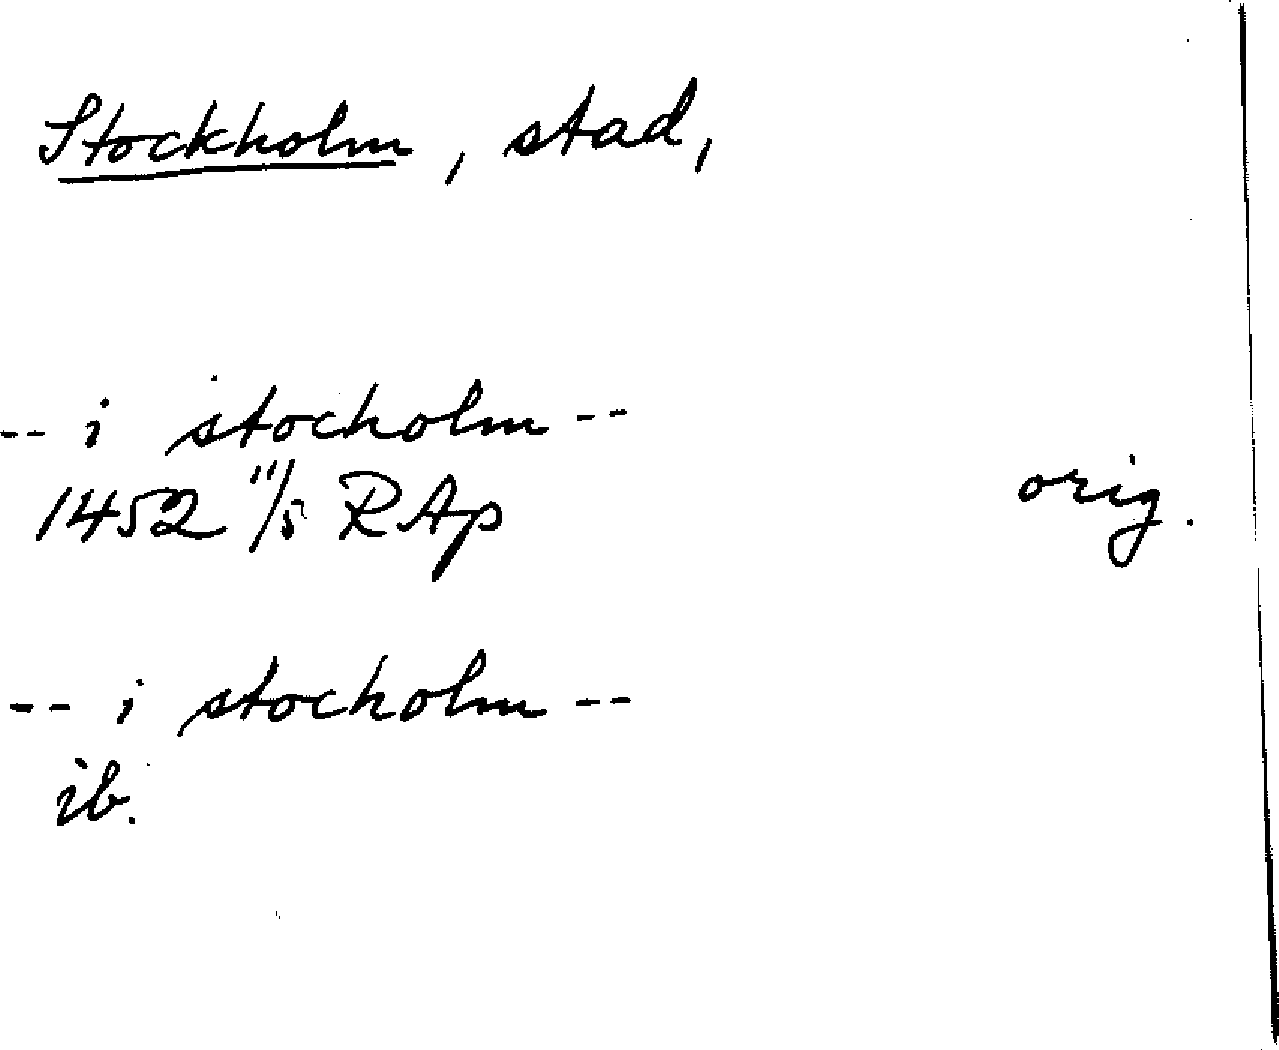 Stockholm, stad,
-- i stocholm --
1452 11/5 RAp orig.
-- i stocholm --
ib.